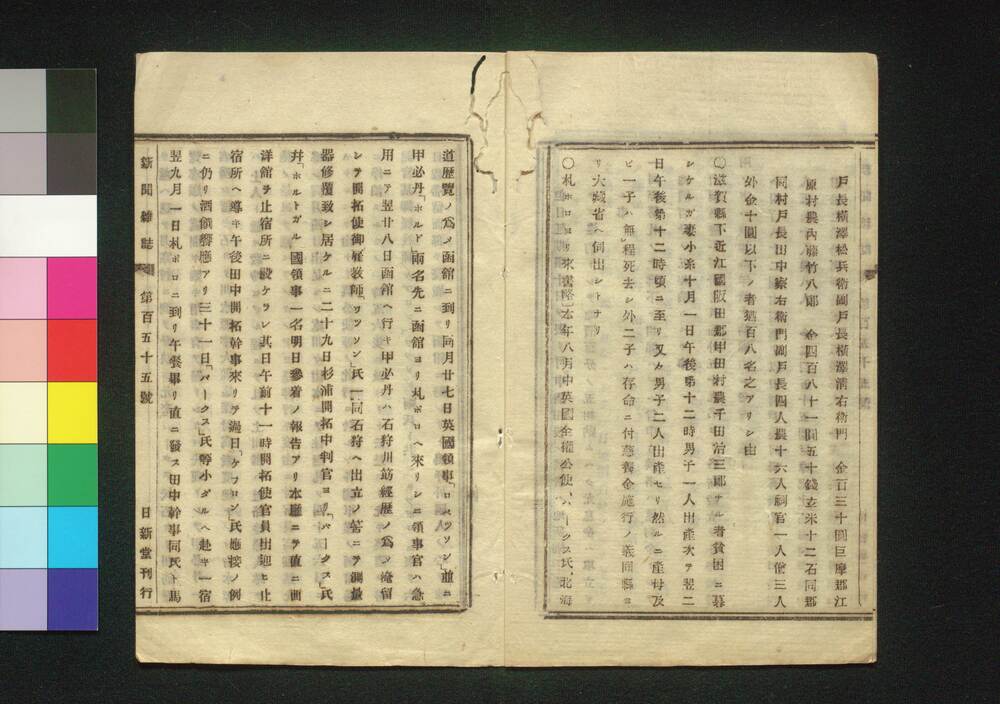 戸長横澤松兵衛副戸長横澤清右衛門 金百三十圓巨摩郡江
原村農内藤竹八郎 金四百八十一圓五十錢玄米十二石同郡
同村戸長田中察右衛門副戸長四人農十六人祠官一人僧三人
外金十圓以下ノ者猶百八名之アリシ由
〇滋賀縣下近江國阪田郡甲田村農千田治三郎ナル者貧困ニ暮
シケルガ妻小糸十月一日午後第十二時男子一人出產次テ翌二
日午後第十二時頃ニ至リ又々男子二人出產セリ然ルニ產母及
ビ一子ハ無程死去シ外二子ハ存命ニ付慈養金施行ノ義同縣ヨ
リ大藏省ヘ伺出シトナリ
〇札ホロヨリ來書略本年八月中英國全權公使「パークス氏、北海
道歷覽ノ爲メ函館ニ到リ同月廿七日英國領事「ロベツソン」並ニ
甲必丹「ホルト」兩名先ニ函館ヨリ札ポロヘ來リシニ領事官ハ急
用ニテ翌廿八日函館ヘ行キ甲必丹ハ石狩川筋經歷ノ爲メ滯留
シテ開拓使御雇敎師「ワツソン」氏一同石狩ヘ出立ノ筈ニテ測量
器修覆致シ居ケルニ二十九日杉浦開拓中判官ヨリ「パークス」氏
幷「ホルトガル」國領事一名明日參着ノ報告アリ本廳ニテ値ニ画
洋館ヲ止宿所ニ設ケツレ其日午前十一時開拓使官員出迎ヒ止
宿所ヘ導キ午後田中開拓幹事來リテ過日「ケプロン」氏應接ノ例
ニ仍リ酒饌饗應アリ三十一日「パークス」氏等小ダルヘ赴キ一宿
翌九月一日札ポロニ到リ午餐畢リ直ニ發ス田中幹事同氏ト馬
新聞雜誌 第百五十五號 日新堂刊行